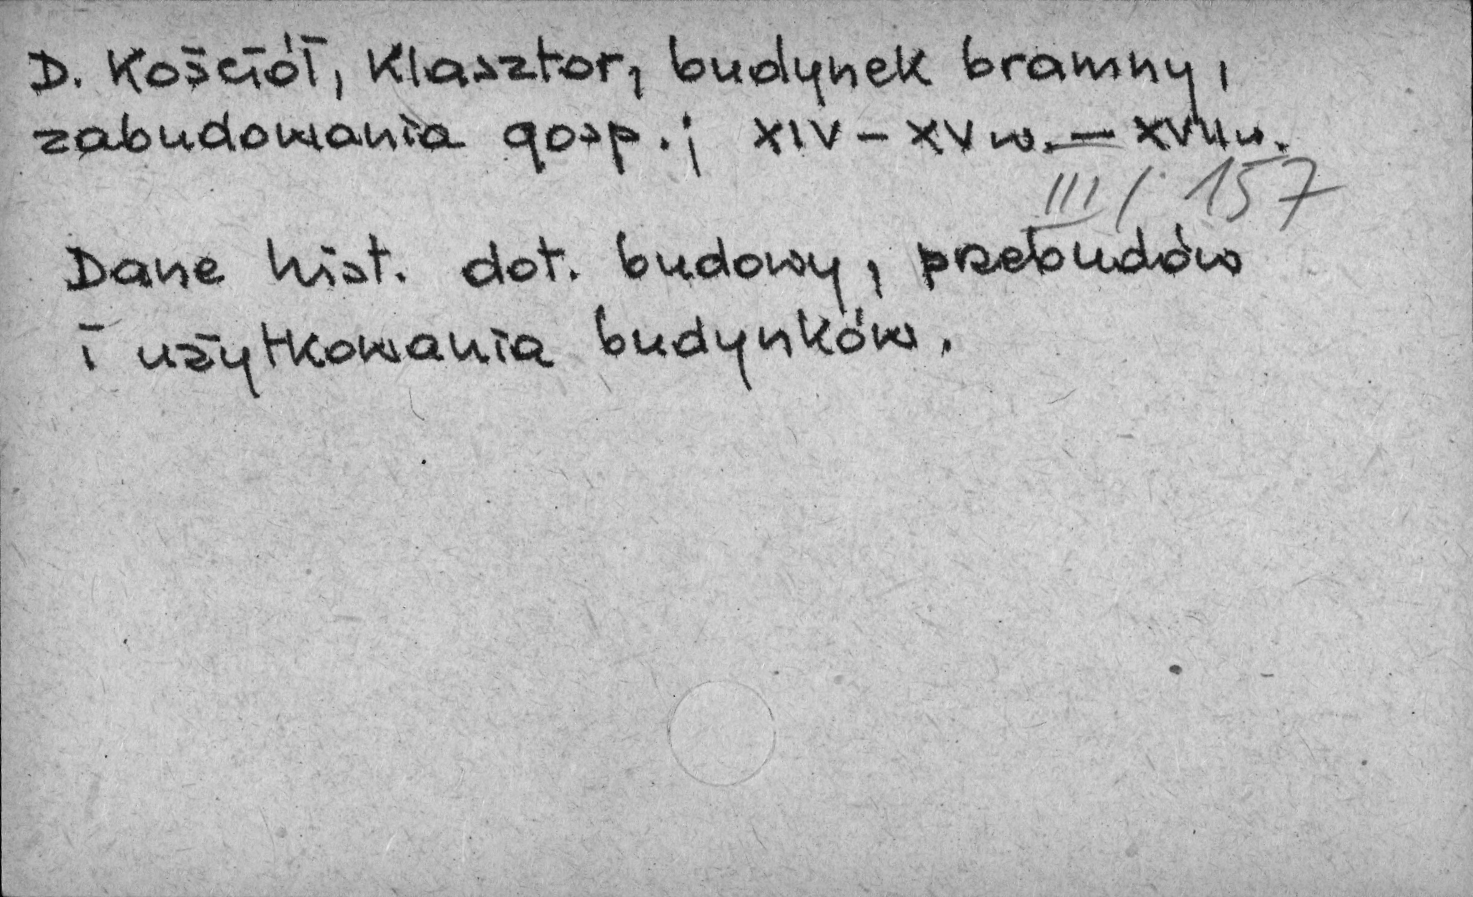 D. Kościół, Klasztor, budynek bramny,
zabudowania gosp.; XIV - XV w. - XVII w.
III / 157
Dane hist. dot. budowy, przebudów
i użytkowania budynków.